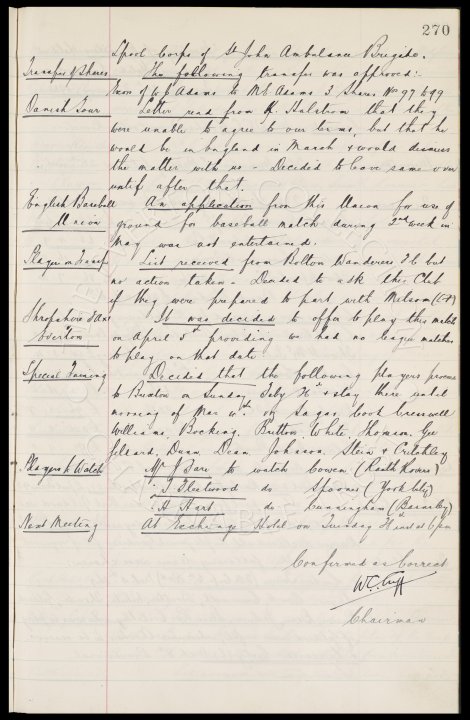 270
Lpool Corps of St John Ambulance Brigade.
Transfer of Shares The following transfer was approved:-
of W J Adams to Adams 3 Shares Nos 97 to 99
Danish Tour Letter read from Halstrom that they
were unable to agree to our terms, but that he
would be in England in March & would discuss
the matter with us - Decided to leave same over
until after that.
English Baseball An application from this Union for use of
Union ground for baseball match during 2nd week in
May was not entertained.
Player on Transf List received from Bolton Wanderers but
no action taken - Decided to ask this Club
if they were prepared to part with Milsom
Shropshire It was decided to offer to play this match
Everton on April 5th providing we had no league matches
to play on that date
Special Training Decided that the following players proceed
to Buxton on Sunday Feby & stay there until
morning of Mar Sagar, Cook Cresswell
Williams, Bocking, Britton, White, Thomson, Gee
Geldard, Dunn, Dean, Johnson, Stein & Critchley
Players to Watch Mr J Sare to watch Cowen (Raith Rovers)
" T Fleetwood do Spooner (York City)
" H Hart do Cunningham (Barnsley)
Next Meeting At Exchange Hotel on Tuesday at 6pm
Confirmed as Correct
W.C. Cuff
Chairman